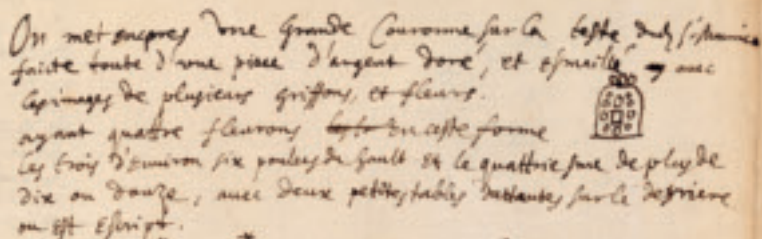 On met encores une grande Couronne sur la teste dud. s.t
faicte toute d'une piece d'argent doré, et esmaillé, avec
les images de plusieurs griffons, et fleurs.
ayant quattre fleurons en ceste forme
les trois d'environ six poulces de hault et le quattriesme de plus de
dix ou douze, avec deux petites tables battantes sur le derriere
ou est escript.